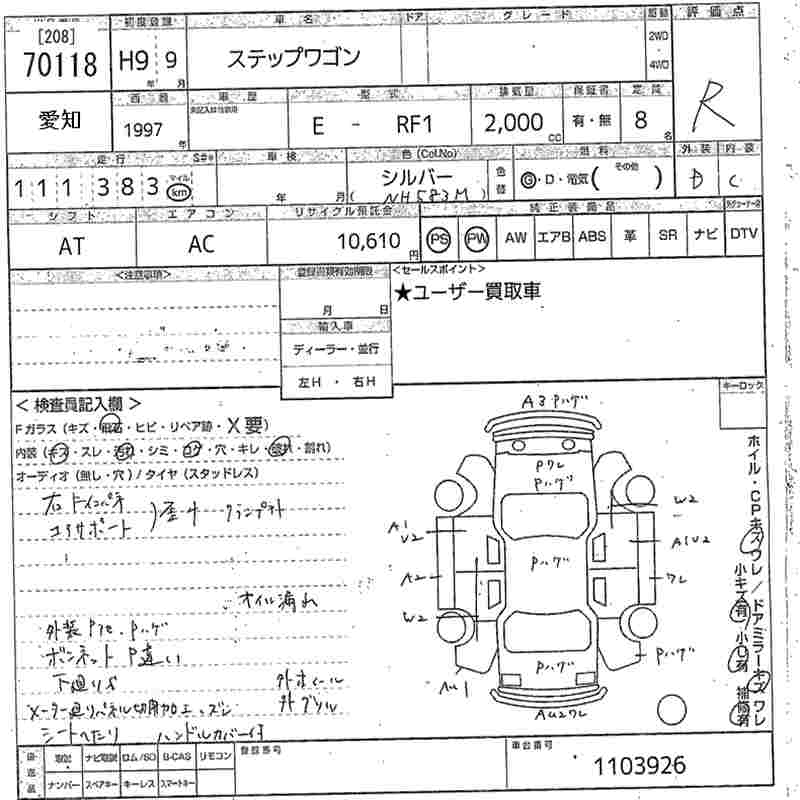 初度登録 車名 ドア グレード 駆動 評価点
[208]
70118 H9 年 9 月 ステップワゴン 2WD 4WD R
西暦 車歴 型式 排気量 保証書 定員
愛知 1997 年 E - RF1 2,000 cc 有・無 8 名
走行 車検 色(Col.No) 燃料 外装 内装
111,383 マイル km 年 月 シルバー (NH583M) 色替 G・D・電気( その他 ) D C
シフト エアコン リサイクル預託金 純正装備品
AT AC 10,610 円 PS PW AW エアB ABS 革 SR ナビ DTV
<注意事項> 登録書類有効期限 <セールスポイント>
月 日 ★ユーザー買取車
輸入車
ディーラー・並行
左H ・ 右H
キーロック
< 検査員記入欄 >
Fガラス(キズ・飛石・ヒビ・リペア跡・X要)
内装(キズ・スレ・汚れ・シミ・コゲ・穴・キレ・破れ・割れ)
オーディオ(無し・穴)/タイヤ(スタッドレス)
右トインパネ
コアサポート )歪サ クランプ
オイル漏れ
外装Pクレ、Pハゲ
ボンネットP違い
下廻りS 外ホイール
メーター廻りパネル切削加工 外グリル
シートへたり ハンドルカバー付
A3 Pハゲ
Pクレ
Pハゲ
W2
A1
V2
A1V2
Pハゲ
A2
ワレ
W2
Pハゲ
AU1
Pハゲ
AU2ワレ
ホイール・CPキズワレ/ドアミラーキズワレ
小キズ有/小凹有 補修有
取説 ナビ取説 ロム/SD B-CAS リモコン 登録番号 車台番号
ナンバー スペアキー キーレス スマートキー 1103926